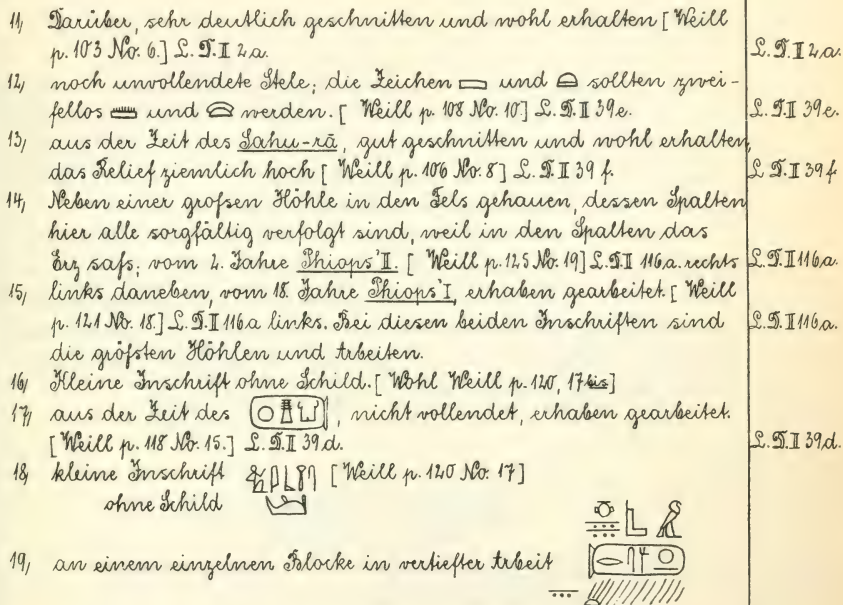 11, Darüber, sehr deutlich geschnitten und wohl erhalten [Weill
p. 103 No. 6.] L. D. II 2 a. L. D. II 2 a.
12, noch unvollendete Stele; die Zeichen 𓈙 und 𓏏 sollten zwei-
fellos 𓏠 und 𓈍 werden. [Weill p. 108 No. 10] L. D. II 39 e. L. D. II 39 e.
13, aus der Zeit des Sahu-rā, gut geschnitten und wohl erhalten,
das Relief ziemlich hoch [Weill p. 106 No. 8] L. D. II 39 f. L. D. II 39 f
14, Neben einer grofsen Höhle in den Fels gehauen, dessen Spalten
hier alle sorgfältig verfolgt sind, weil in den Spalten das
Erz safs; vom 2. Jahre Phiops' II. [Weill p. 125 No. 19] L. D. II 116.a. rechts L. D. II 116.a.
15, links daneben, vom 18. Jahre Phiops' I, erhaben gearbeitet. [Weill
p. 121 No. 18.] L. D. II 116 a links. Bei diesen beiden Inschriften sind L. D. II 116.a.
die gröfsten Höhlen und Arbeiten.
16, Kleine Inschrift ohne Schild. [Wohl Weill p. 120, 17 bis]
17, aus der Zeit des 𓇳𓊽𓂓, nicht vollendet, erhaben gearbeitet.
[Weill p. 118 No. 15.] L. D. II 39 d. L. D. II 39 d.
18, kleine Inschrift [Weill p. 120 No. 17]
ohne Schild
19, an einem einzelnen Blocke in vertiefter Arbeit